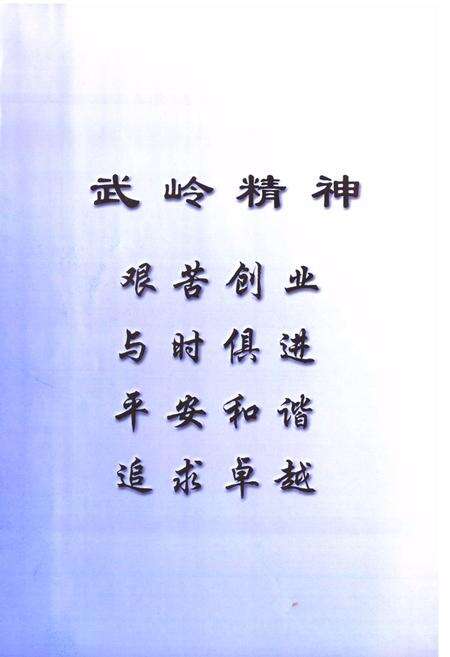 武岭精神
艰苦创业
与时俱进
平安和谐
追求卓越